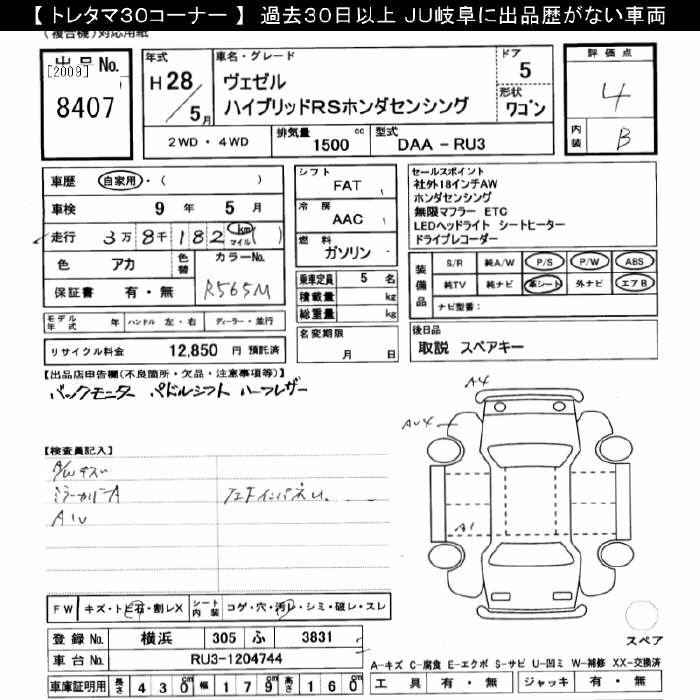 【 トレタマ30コーナー 】 過去30日以上 JU岐阜に出品歴がない車両
(複合機)対応用紙
出品No.
[2009]
8407
年式
H28/5月
車名・グレード
ヴェゼル
ハイブリッドRSホンダセンシング
ドア
5
形状
ワゴン
2WD・4WD
排気量 1500 cc
型式 DAA-RU3
評価点
4
内装
B
車歴 自家用・( )
車検 9 年 5 月
走行 3万8千182 km マイル ( )
色 アカ
色替
カラーNo.
R565M
保証書 有・無
モデル年式 年 ハンドル 左・右 ディーラー・並行
リサイクル料金 12,850 円 預託済
シフト
FAT
冷房
AAC
燃料
ガソリン
乗車定員 5 名
積載量 kg
総重量 kg
名変期限
月 日
セールスポイント
社外18インチAW
ホンダセンシング
無限マフラー ETC
LEDヘッドライト シートヒーター
ドライブレコーダー
装備品
S/R 純A/W P/S P/W ABS
純TV 純ナビ 革シート 外ナビ エアB
ナビ型番:
後日品
取説 スペアキー
【出品店申告欄(不良箇所・欠品・注意事項等)】
バックモニター パドルシフト ハーフレザー
【検査員記入】
A/Wキズ
ミラーカバーA
A4
AU4
A1
FW キズ・トビ石・割レX
シート内装 コゲ・穴・汚レ・シミ・破レ・スレ
スペア
登録No. 横浜 305 ふ 3831
車台No. RU3-1204744
車庫証明用 長さ 430 幅 179 高さ 160
A-キズ C-腐食 E-エクボ S-サビ U-凹ミ W-補修 XX-交換済
工具 有・無 ジャッキ 有・無